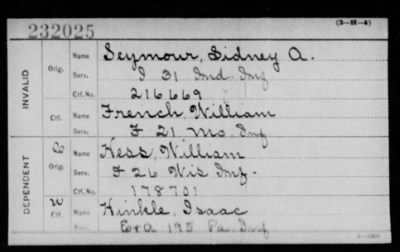 232025
(3-111-A)
INVALID
Orig.
Name Seymour, Sidney A.
Serv. I 31 Ind. Inf
Ctf. No. 216669
Ctf.
Name French, William
Serv. F 21 Mo. Inf
DEPENDENT
Orig.
Name Hess, William
Serv. F 26 Wis Inf.
Ctf. No. 178701
W
Ctf.
Name Hinkle, Isaac
Serv. E+A 195 Pa. Inf